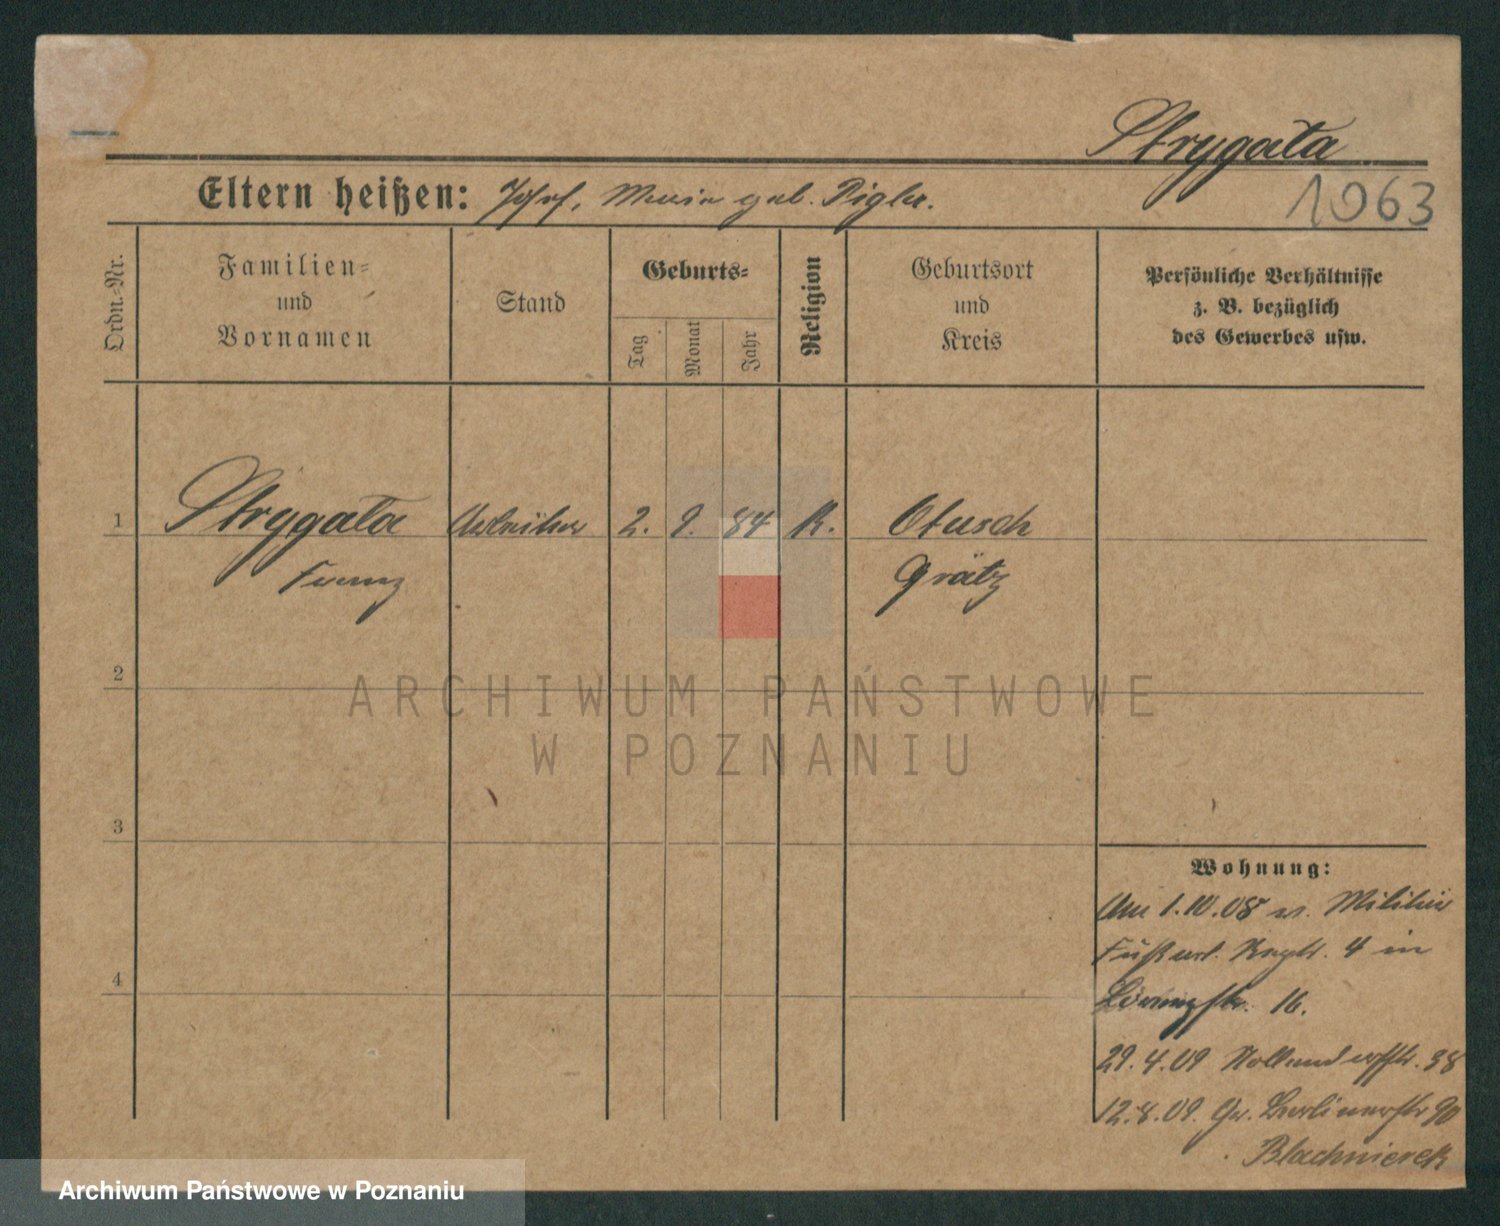 Strygala
1063
Eltern heißen: Josef, Maria geb. Pigla.
Ordn.-Nr.
Familien-
und
Vornamen
Stand
Geburts-
Tag
Monat
Jahr
Religion
Geburtsort
und
Kreis
Persönliche Verhältnisse
z. B. bezüglich
des Gewerbes usw.
1
Strygala Arbeiter 2. 9. 84 K. Otusch
Franz Grätz
2
ARCHIWUM PAŃSTWOWE
W POZNANIU
3
Wohnung:
1.10.08 Militär
4 in
16.
4
29.4.09 38
12.8.09. Gr. Berlinerstr 90
Archiwum Państwowe w Poznaniu